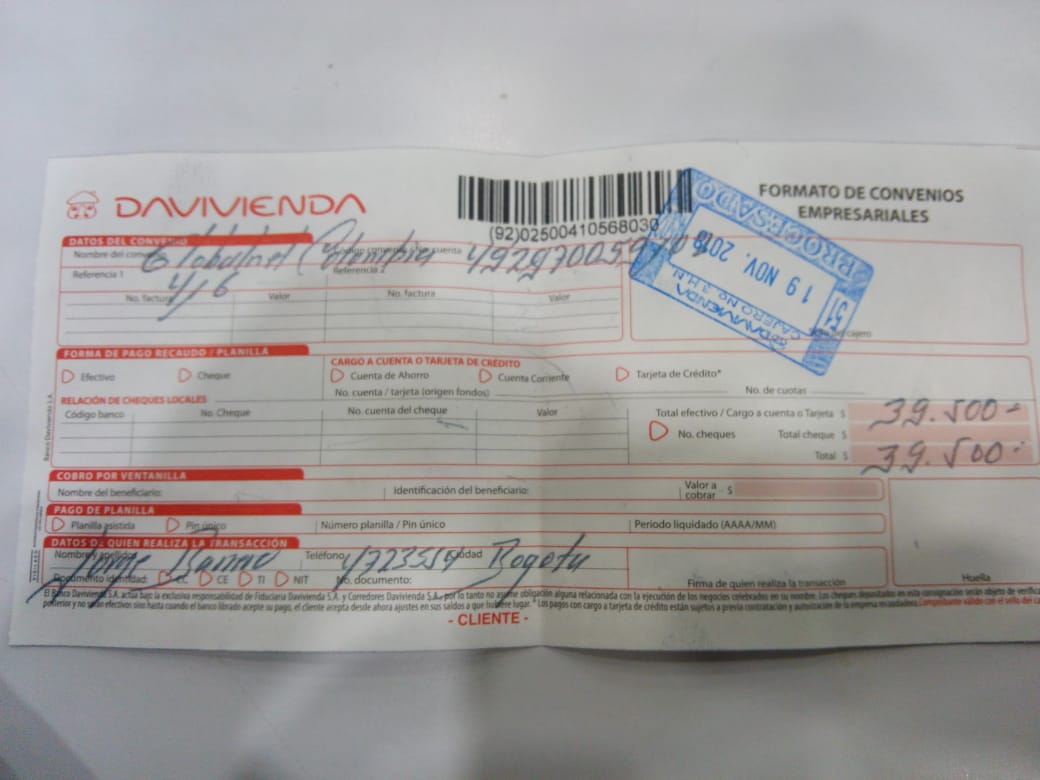 DAVIVIENDA
(92)02500410568030
FORMATO DE CONVENIOS
EMPRESARIALES
PROCESADO
51
19 NOV. 2018
CAJERO No. 3 H.N.
DAVIVIENDA
DATOS DEL CONVENIO
Nombre del convenio Globalnet Colombia
Referencia 1 416
Referencia 2
No. factura Valor No. factura Valor
FORMA DE PAGO RECAUDO / PLANILLA
Efectivo Cheque
CARGO A CUENTA O TARJETA DE CRÉDITO
Cuenta de Ahorro Cuenta Corriente Tarjeta de Crédito*
No. cuenta / tarjeta (origen fondos) No. de cuotas
RELACIÓN DE CHEQUES LOCALES
Código banco No. Cheque No. cuenta del cheque Valor
Total efectivo / Cargo a cuenta o Tarjeta $ 39.500-
No. cheques Total cheque $
Total $ 39.500-
COBRO POR VENTANILLA
Nombre del beneficiario: Identificación del beneficiario: Valor a cobrar $
PAGO DE PLANILLA
Planilla asistida Pin único Número planilla / Pin único Periodo liquidado (AAAA/MM)
DATOS DE QUIEN REALIZA LA TRANSACCIÓN
Nombre y apellidos Jorge Teléfono 4723554 Ciudad Bogota
Documento identidad: CC CE TI NIT No. documento: Firma de quien realiza la transacción Huella
El Banco Davivienda S.A. actúa bajo la exclusiva responsabilidad de Fiduciaria Davivienda S.A. y Corredores Davivienda S.A., por lo tanto no asume obligación alguna relacionada con la ejecución de los negocios celebrados en su nombre. Los cheques depositados en esta consignación serán objeto de
posterior y no serán efectivos sino hasta cuando el banco librado acepte su pago, el cliente acepta desde ahora ajustes en sus saldos a que hubiere lugar. * Los pagos con cargo a tarjeta de crédito están sujetos a previa contratación y autorización de la empresa recaudadora. Comprobante válido con el sello del
- CLIENTE -
Banco Davivienda S.A.